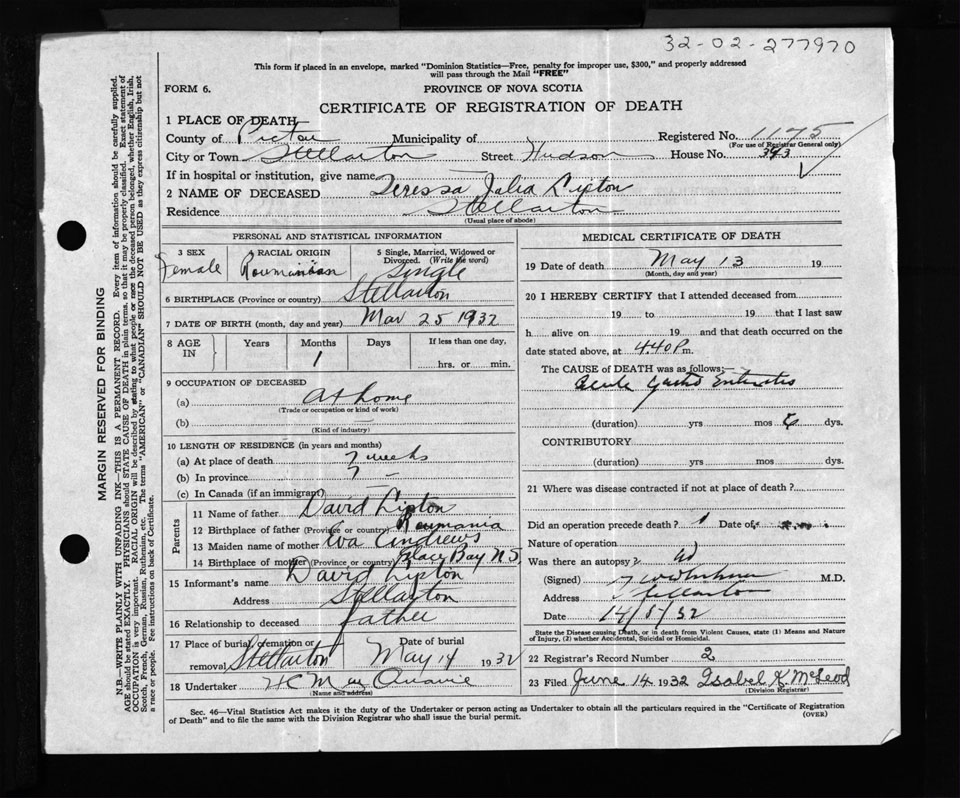 32-02-277970
This form if placed in an envelope, marked "Dominion Statistics—Free, penalty for improper use, $300," and properly addressed
will pass through the Mail "FREE"
FORM 6.
PROVINCE OF NOVA SCOTIA
CERTIFICATE OF REGISTRATION OF DEATH
1 PLACE OF DEATH
County of Pictou Municipality of Registered No. 1175
(For use of Registrar General only)
City or Town Stellarton Street Hudson House No. 343
If in hospital or institution, give name —
2 NAME OF DECEASED Teressa Julia Lipton
Residence Stellarton
(Usual place of abode)
PERSONAL AND STATISTICAL INFORMATION
3 SEX Female
RACIAL ORIGIN Roumanian
5 Single, Married, Widowed or
Divorced. (Write the word)
Single
6 BIRTHPLACE (Province or country) Stellarton
7 DATE OF BIRTH (month, day and year) Mar 25 1932
8 AGE IN Years Months 1 Days If less than one day,
hrs. or min.
9 OCCUPATION OF DECEASED
(a) at home
(Trade or occupation or kind of work)
(b)
(Kind of industry)
10 LENGTH OF RESIDENCE (in years and months)
(a) At place of death 7 weeks
(b) In province 7
(c) In Canada (if an immigrant) —
Parents
11 Name of father David Lipton
12 Birthplace of father (Province or country) Roumania
13 Maiden name of mother Eva Andrews
14 Birthplace of mother (Province or country) Glace Bay N S
15 Informant's name David Lipton
Address Stellarton
16 Relationship to deceased father
17 Place of burial, cremation or
removal Stellarton
Date of burial
May 14 1932
18 Undertaker
(Name and address)
MEDICAL CERTIFICATE OF DEATH
19 Date of death May 13 19
(Month, day and year)
20 I HEREBY CERTIFY that I attended deceased from
19 to 19 that I last saw
h alive on 19 and that death occurred on the
date stated above, at 4.40 P m.
The CAUSE OF DEATH was as follows:
Acute Gastro Enteritis
(duration) yrs mos dys.
CONTRIBUTORY
(duration) yrs mos dys.
21 Where was disease contracted if not at place of death?
Did an operation precede death? Date of
Nature of operation
Was there an autopsy?
(Signed) M.D.
Address Stellarton
Date 14/5/32
State the Disease causing Death, or in death from Violent Causes, state (1) Means and Nature
of Injury, (2) whether Accidental, Suicidal or Homicidal.
22 Registrar's Record Number 2
23 Filed June 14 1932 Isabel K. McLeod
(Division Registrar)
Sec. 46—Vital Statistics Act makes it the duty of the Undertaker or person acting as Undertaker to obtain all the particulars required in the "Certificate of Registration
of Death" and to file the same with the Division Registrar who shall issue the burial permit.
(OVER)
MARGIN RESERVED FOR BINDING
N.B.—WRITE PLAINLY WITH UNFADING INK—THIS IS A PERMANENT RECORD. Every item of information should be carefully supplied.
AGE should be stated EXACTLY. PHYSICIANS should STATE CAUSE OF DEATH in plain terms, so that it may be properly classified. Exact statement of
OCCUPATION is very important. RACIAL ORIGIN will be described by stating to what people or race the deceased person belonged, whether English, Irish,
Scotch, French, German, Russian, Ruthenian, etc. The terms "AMERICAN" or "CANADIAN" SHOULD NOT BE USED as they express citizenship but not
a race or people. See instructions on back of Certificate.